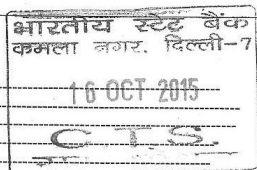 भारतीय स्टेट बैंक
कमला नगर, दिल्ली-7
16 OCT 2015
C. T. S.